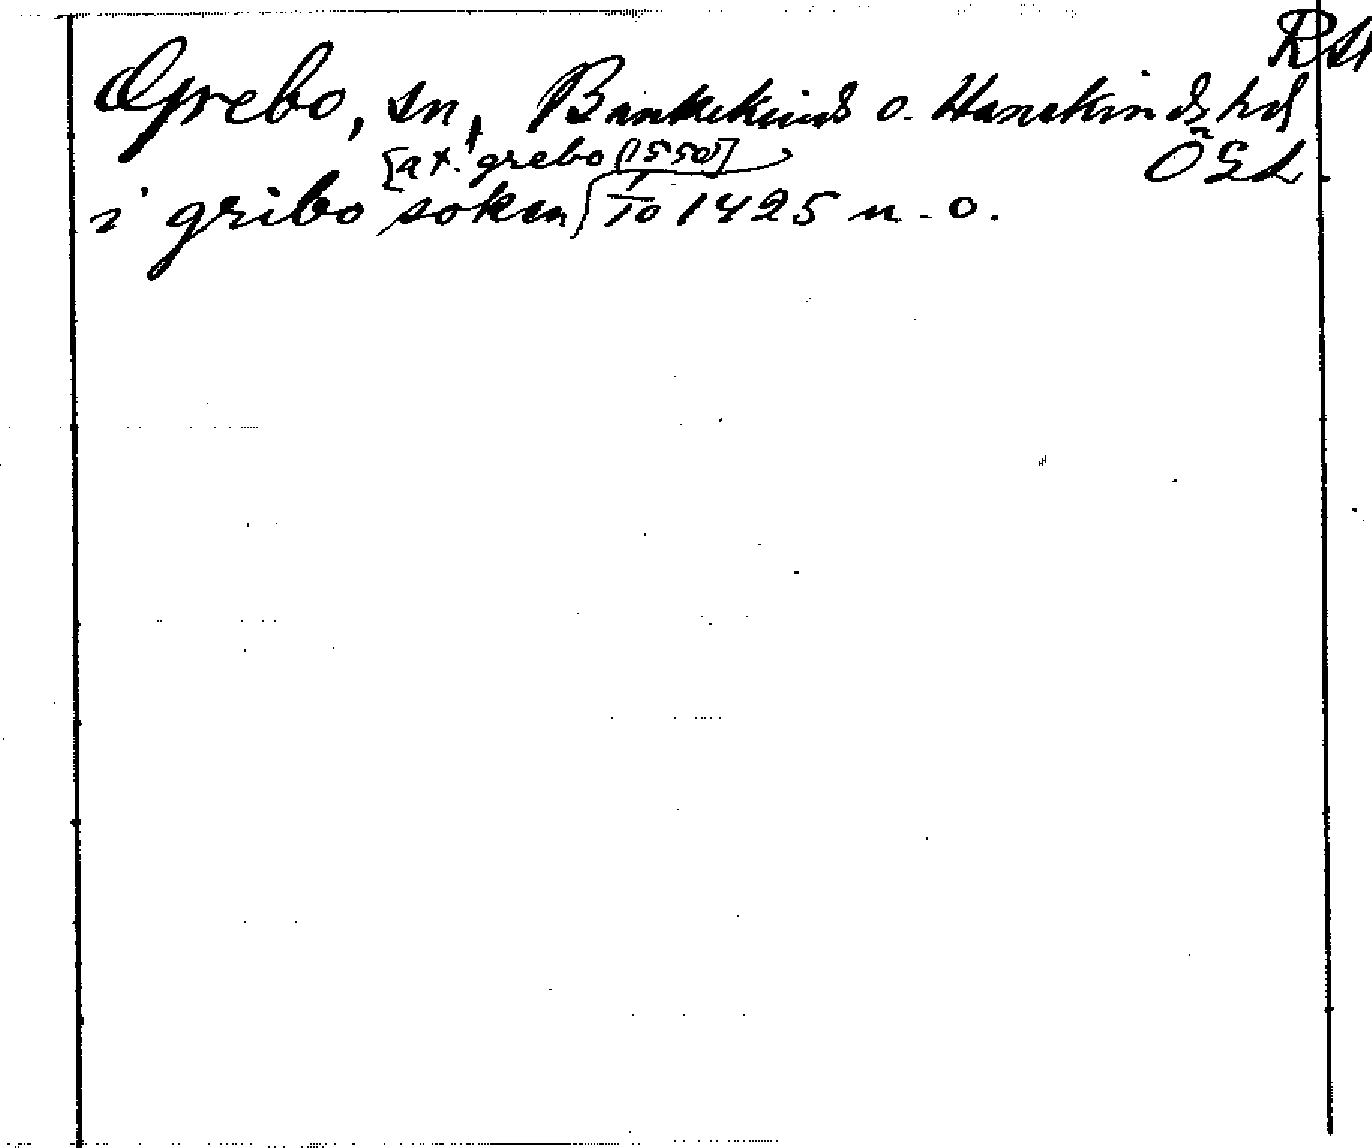 Grebo, sn, Bankekinds o. Hanekinds hd
ÖGL.
[ax. grebo (1550)]
i gribo soken 1/10 1425 n. o.